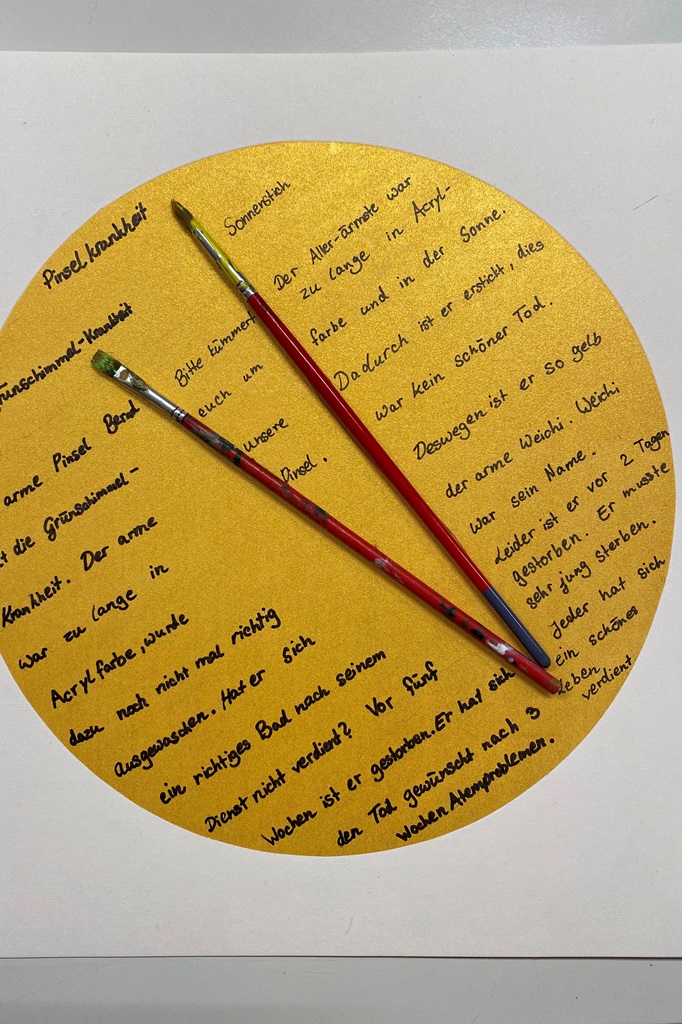 Pinselkrankheit
Grünschimmel-Krankheit
arme Pinsel Bernd
die Grünschimmel-
Krankheit. Der arme
war zu lange in
Acrylfarbe, wurde
dazu noch nicht mal richtig
ausgewaschen. Hat er sich
ein richtiges Bad nach seinem
Dienst nicht verdient? Vor fünf
Wochen ist er gestorben. Er hat sich
den Tod gewünscht nach 3
Wochen Atemproblemen.
Bitte kümmert
euch um
unsere
Pinsel.
Sonnenstich
Der Aller-ärmste war
zu lange in Acryl-
farbe und in der Sonne.
Dadurch ist er ersticht, dies
war kein schöner Tod.
Deswegen ist er so gelb
der arme Weichi. Weichi
war sein Name.
Leider ist er vor 2 Tagen
gestorben. Er musste
sehr jung sterben.
Jeder hat sich
ein schönes
Leben
verdient